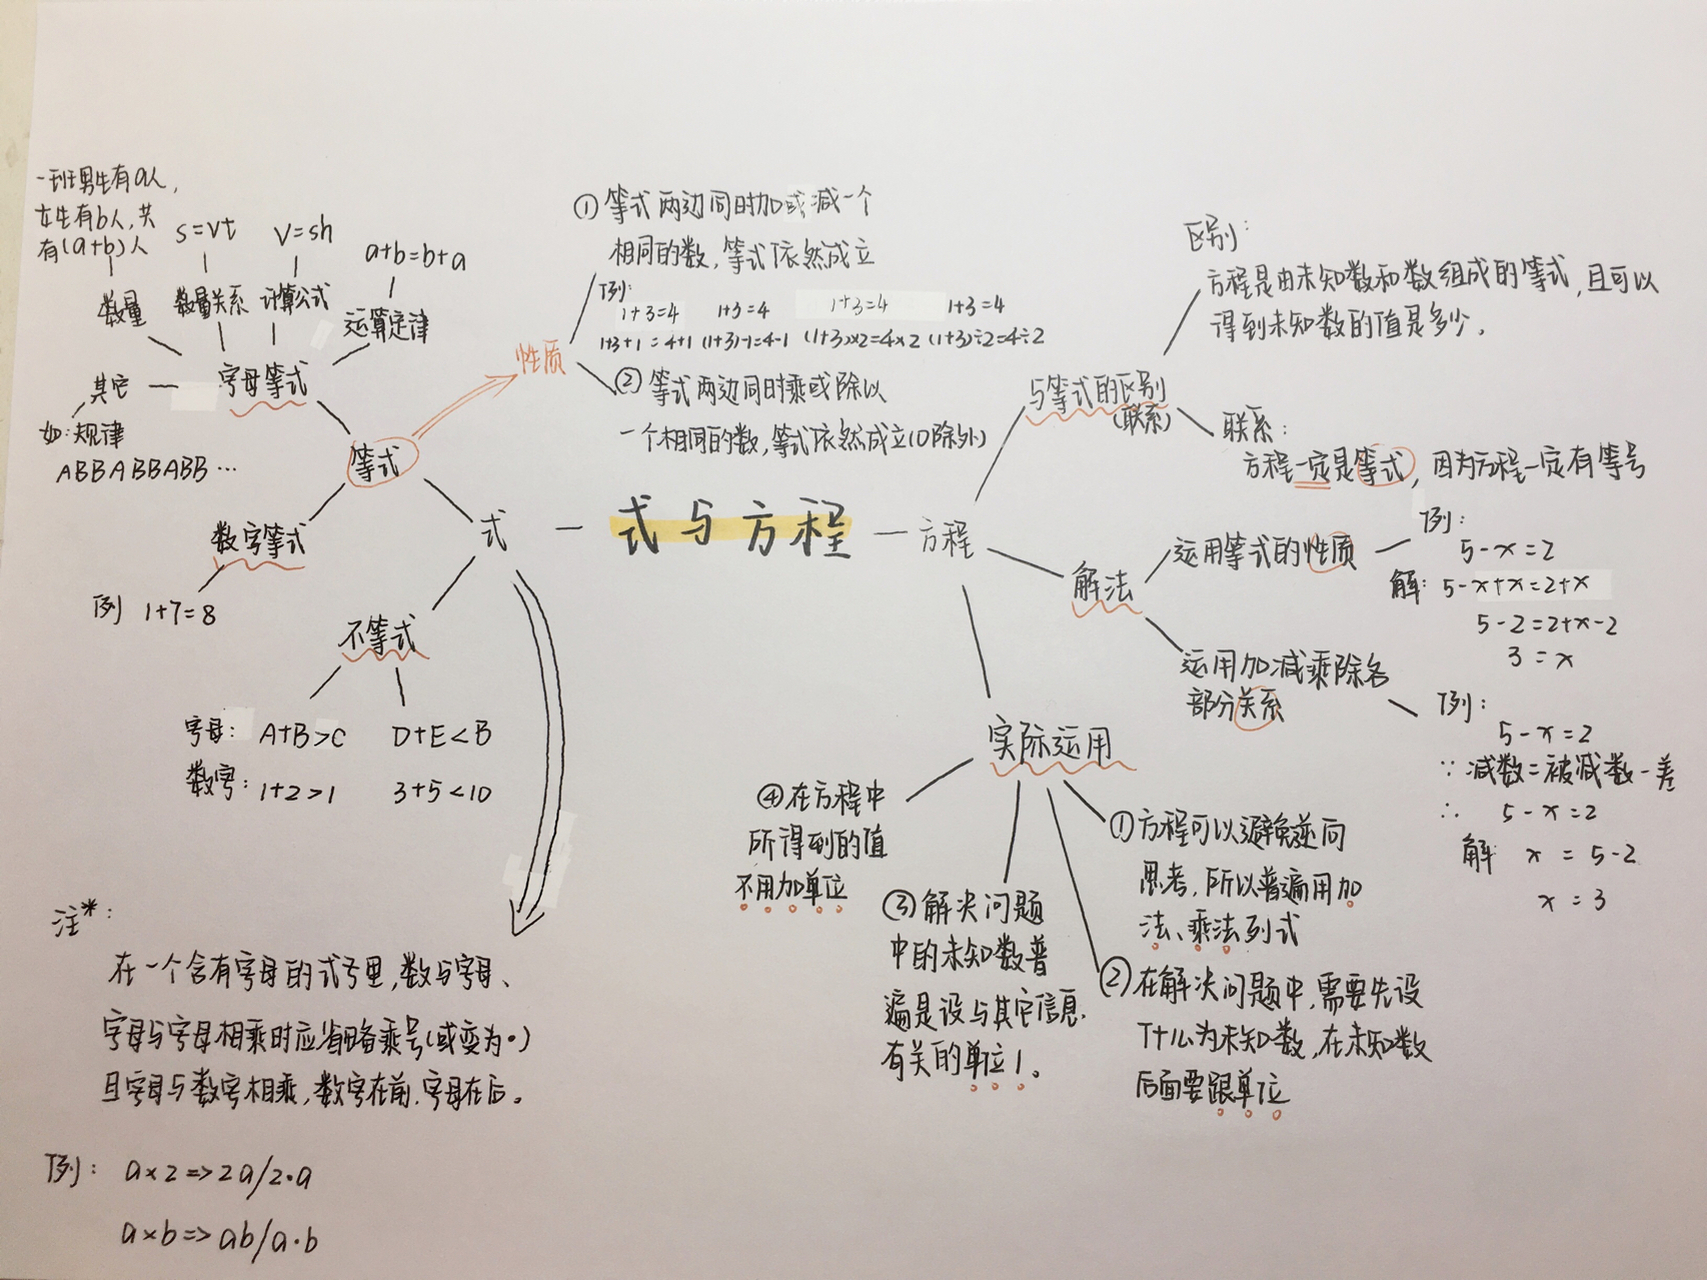 一班男生有a人，
女生有b人，共
有(a+b)人
s=vt
V=sh
a+b=b+a
数量
数量关系
计算公式
运算定律
其它
字母等式
如：规律
ABBABBABB…
等式
数字等式
例 1+7=8
式
不等式
字母： A+B>C D+E<B
数字： 1+2>1 3+5<10
性质
①等式两边同时加或减一个
相同的数，等式依然成立
例：
1+3=4 1+3=4 1+3=4 1+3=4
1+3+1=4+1 (1+3)-1=4-1 (1+3)×2=4×2 (1+3)÷2=4÷2
②等式两边同时乘或除以
一个相同的数，等式依然成立(0除外)
式与方程
方程
与等式的区别
(联系)
区别：
方程是由未知数和数组成的等式，且可以
得到未知数的值是多少。
联系：
方程一定是等式，因为方程一定有等号
解法
运用等式的性质
例：
5-x=2
解：5-x+x=2+x
5-2=2+x-2
3=x
运用加减乘除各
部分关系
例：
5-x=2
∵减数=被减数-差
∴ 5-x=2
解 x=5-2
x=3
实际运用
①方程可以避免逆向
思考，所以普遍用加
法、乘法列式
②在解决问题中，需要先设
什么为未知数，在未知数
后面要跟单位
③解决问题
中的未知数普
遍是设与其它信息
有关的单位1。
④在方程中
所得到的值
不用加单位
注*：
在一个含有字母的式子里，数与字母、
字母与字母相乘时应省略乘号(或变为•)
且字母与数字相乘，数字在前，字母在后。
例： a×2=>2a/2•a
a×b=>ab/a•b